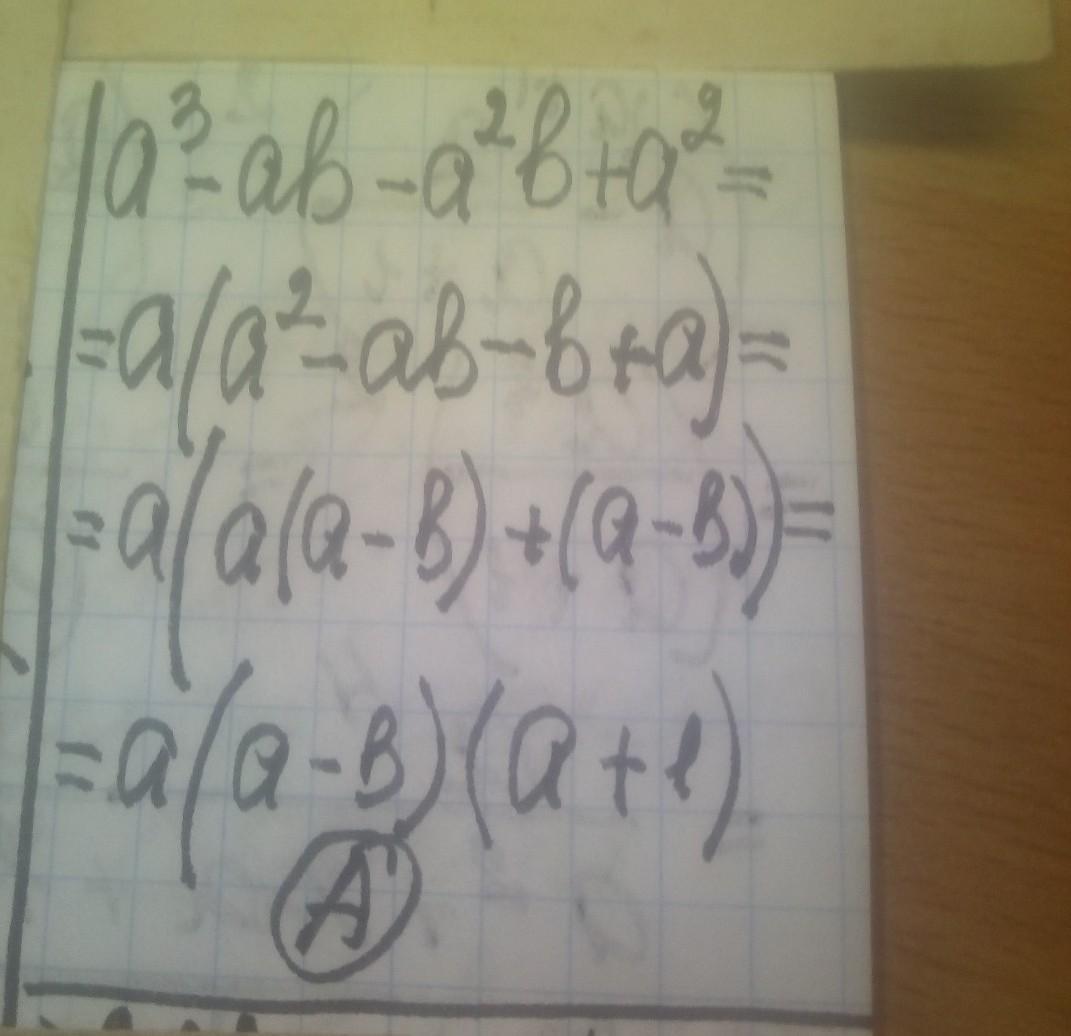 a³-ab-a²b+a²=
=a(a²-ab-b+a)=
=a(a(a-b)+(a-b))=
=a(a-b)(a+1)
A